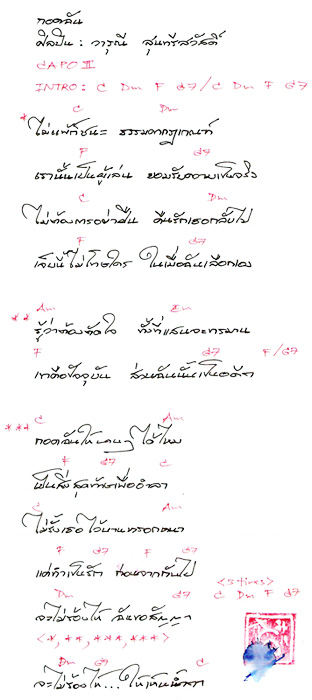 กอดฉัน
ศิลปิน : วารุณี สุนทรีสวัสดิ์
CAPO III
INTRO: C Dm F G7 / C Dm F G7
C Dm
* ไม่แพ้ก็ชนะ ธรรมดากฎเกณฑ์
F G7
เรานั้นเป็นผู้เล่น ยอมรับความเป็นจริง
C Dm
ไม่ต้องการอย่าฝืน คืนรักเธอกลับไป
F G7
เจ็บนี้ไม่โทษใคร ในเมื่อฉันเลือกเอง
Am Em
** รู้ว่าต้องตัดใจ ทั้งที่แสนจะทรมาน
F G7 F/G7
เขาคือปัจจุบัน ส่วนฉันนั้นเป็นอดีต
C Am
*** กอดฉันให้นานๆ ได้ไหม
F G7 C
เป็นสิ่งสุดท้ายเพื่ออำลา
C Am
ไม่รั้งเธอไว้นานหรอกหนา
F G7 F G7
แค่คำเป็นรัก ก่อนจากกันไป
<3 times>
Dm G7 C Dm F G7
จะไม่ร้องไห้ ฉันขอสัญญา
<*, **, ***, ***>
Dm G7 C
จะไม่ร้องไห้...